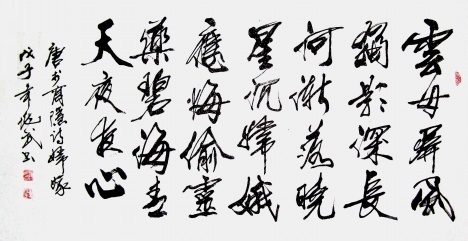 雲母屏風
燭影深長
河漸落曉
星沉嫦娥
應悔偷靈
藥碧海青
天夜夜心
唐李商隱詩嫦娥
戊子年武书